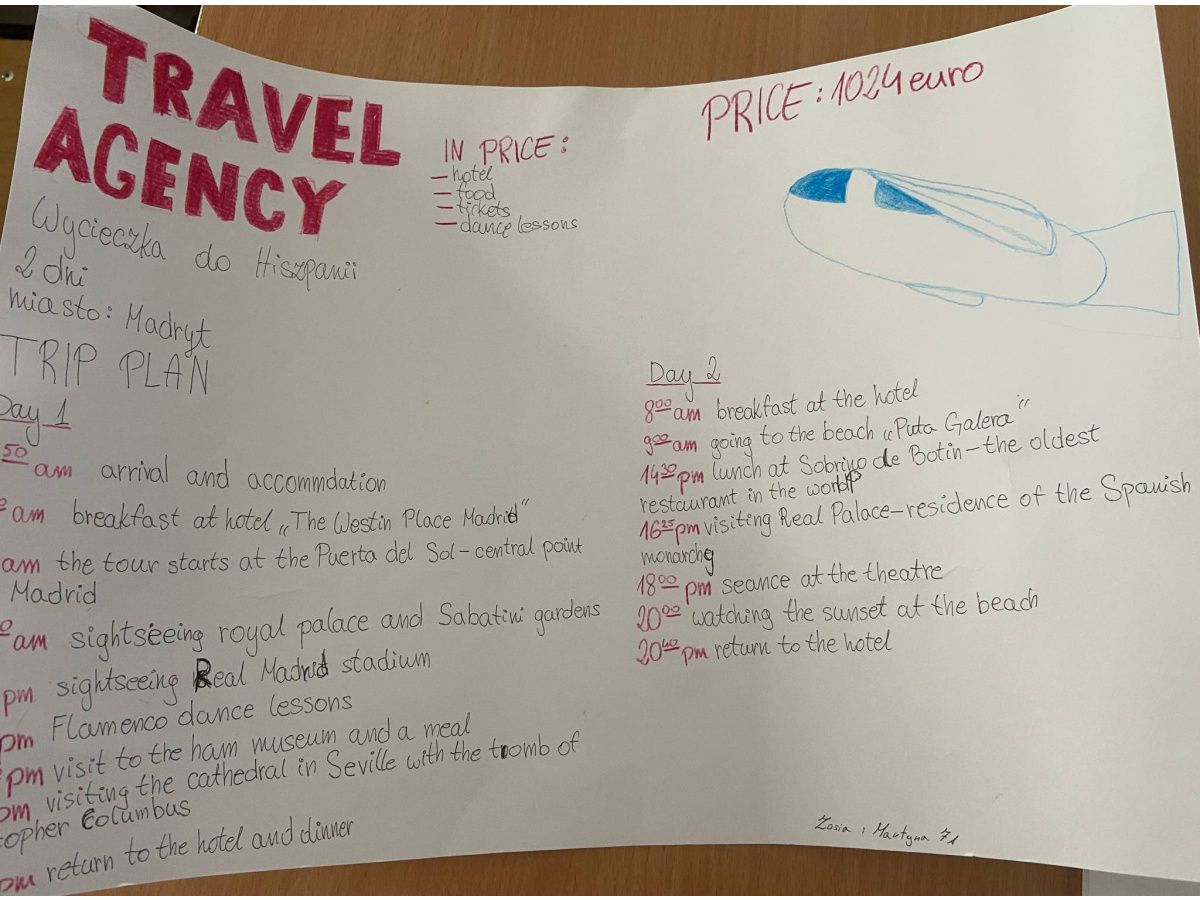 TRAVEL
AGENCY
IN PRICE:
– hotel
– food
– tickets
– dance lessons
PRICE: 1024 euro
Wycieczka do Hiszpanii
2 dni
miasto: Madryt
TRIP PLAN
Day 1
50 am arrival and accommdation
am breakfast at hotel „The Westin Place Madrid"
am the tour starts at the Puerta del Sol – central point
Madrid
am sightseeing royal palace and Sabatini gardens
pm sightseeing Real Madrid stadium
pm Flamenco dance lessons
pm visit to the ham museum and a meal
pm visiting the cathedral in Seville with the tromb of
opher Columbus
pm return to the hotel and dinner
Day 2
8 00 am breakfast at the hotel
9 00 am going to the beach „Puta Galera"
14 30 pm lunch at Sobrino de Botin – the oldest
restaurant in the world
16 25 pm visiting Real Palace – residence of the Spanish
monarchy
18 00 pm seance at the theatre
20 00 watching the sunset at the beach
20 40 pm return to the hotel
Zosia i Martyna 7